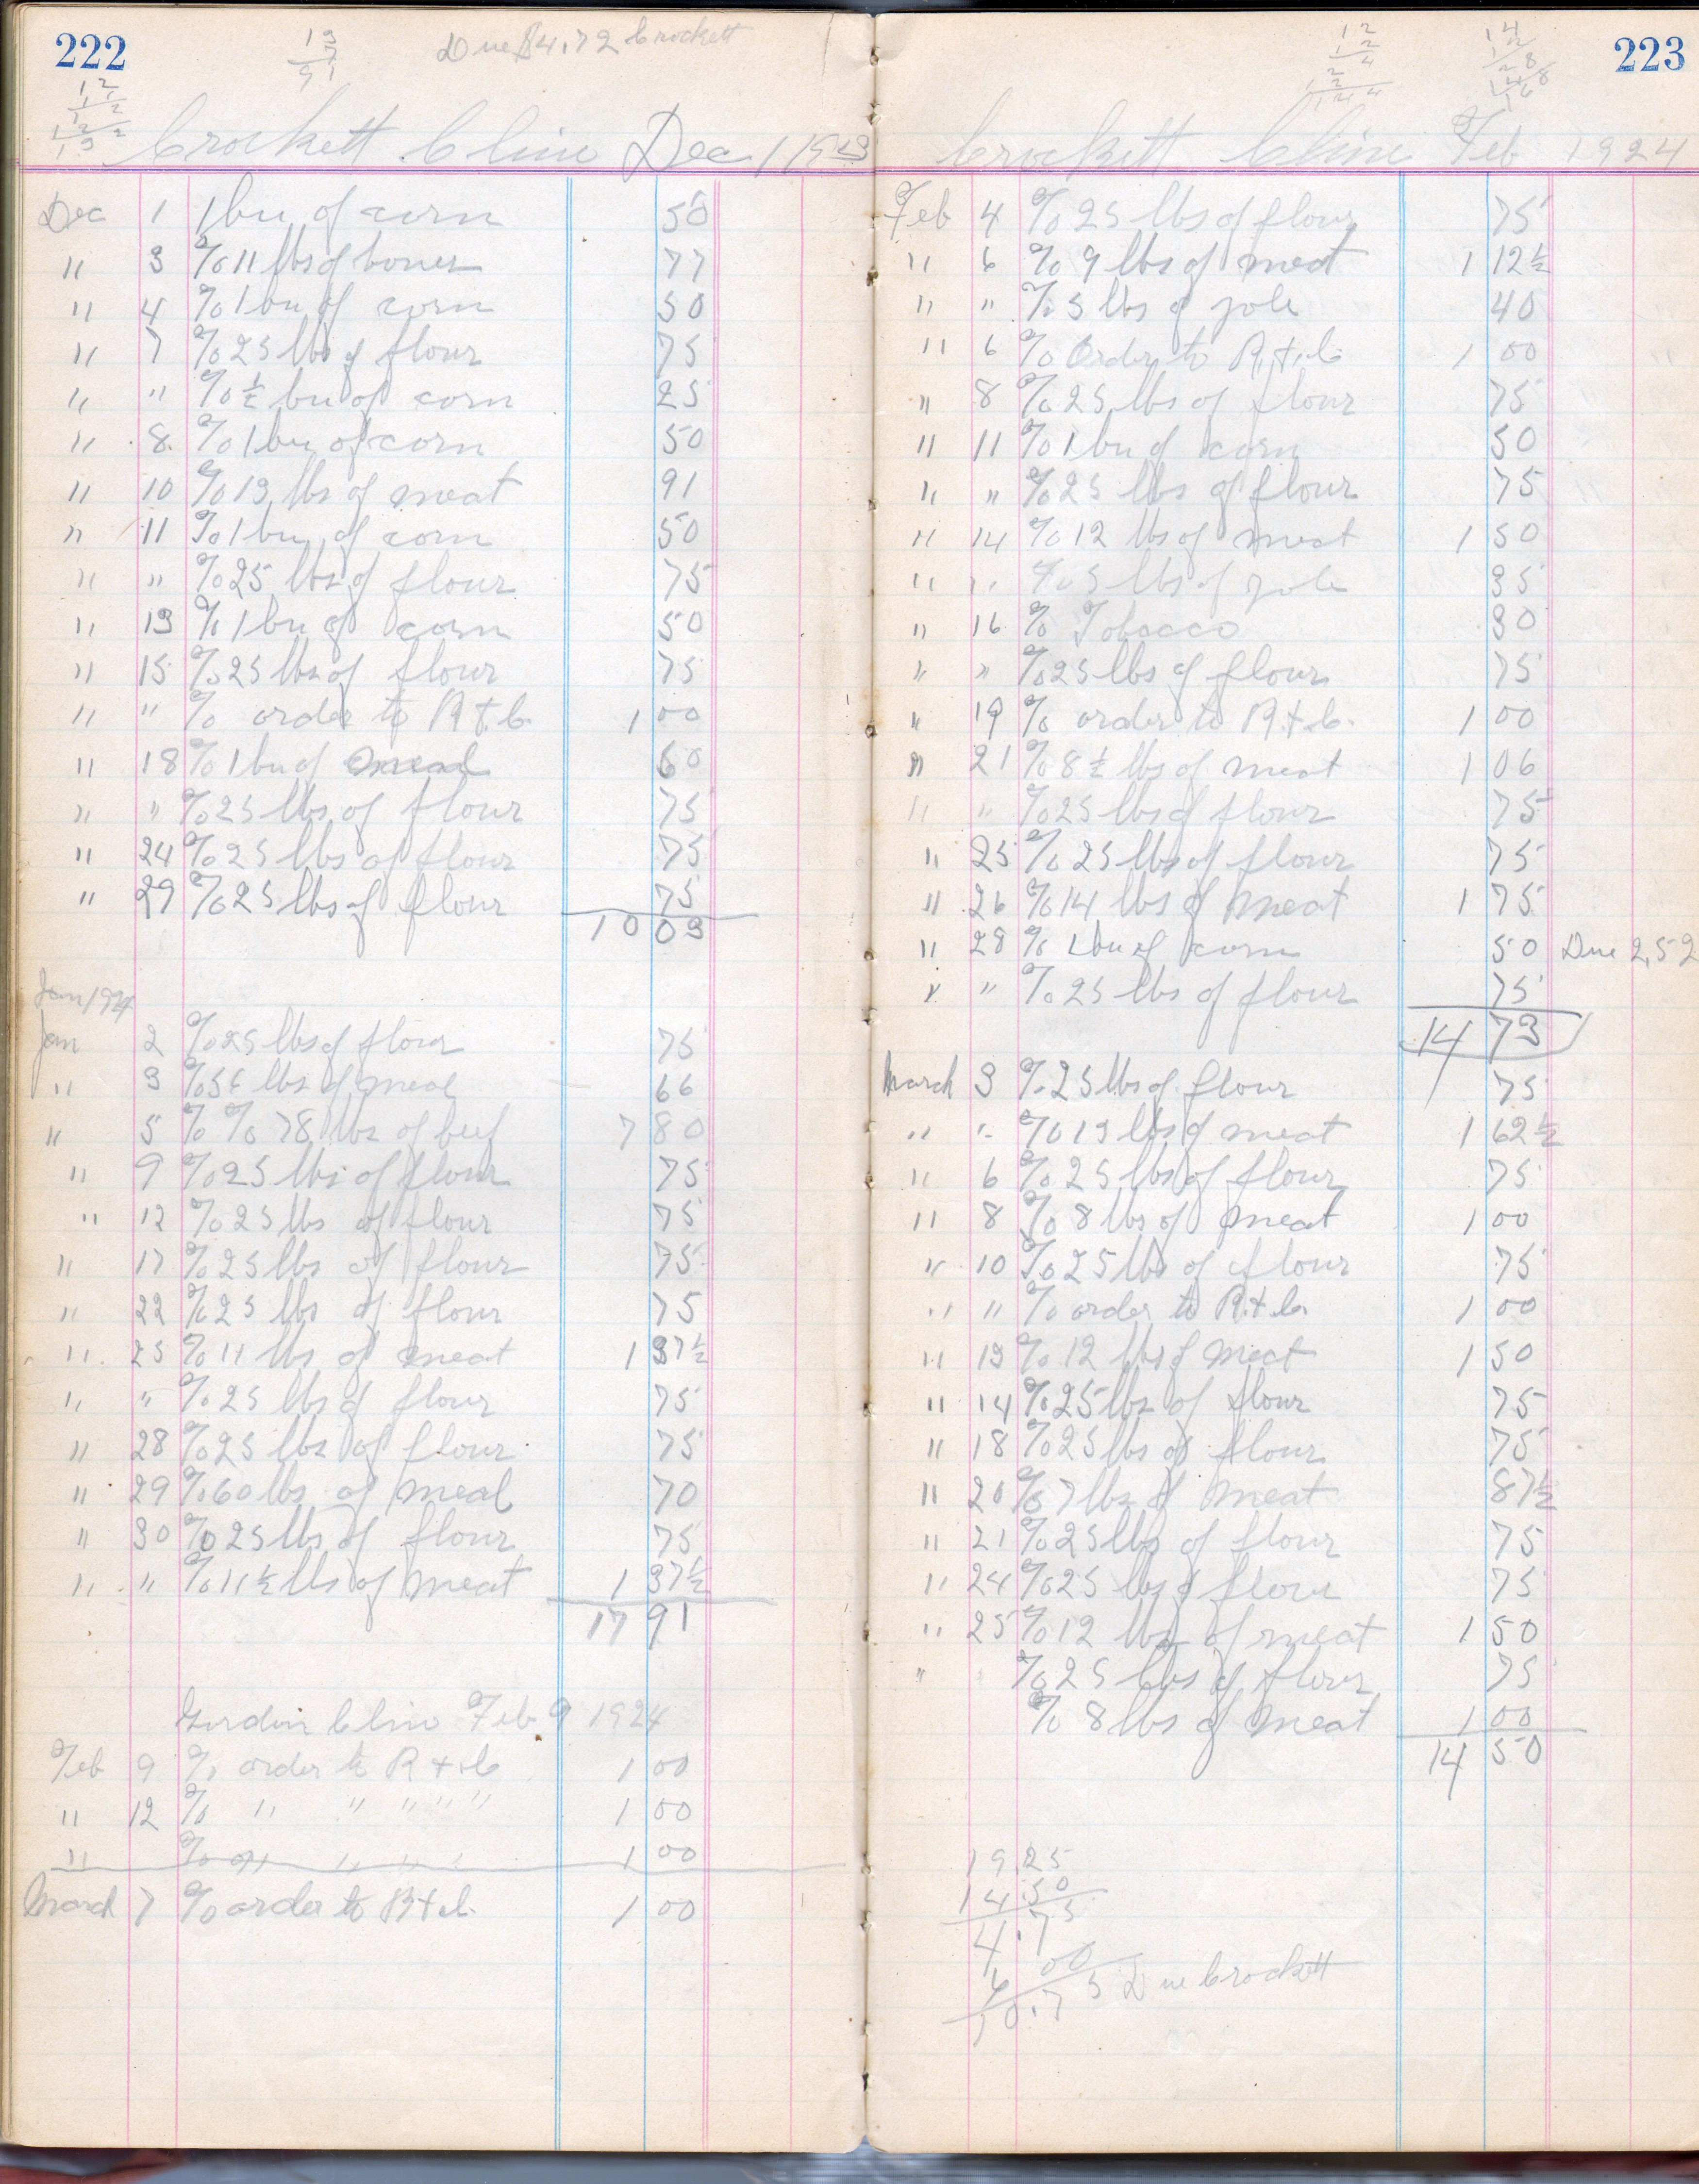 222
13
7
91
Due $4.72 Crockett
12
1
12
12
132
Crockett Cline Dec 1 1923
Dec 1 1 bu of corn 50
" 3 % 11 lbs of bones 77
" 4 % 1 bu of corn 50
" 7 % 25 lbs of flour 75
" " % ½ bu of corn 25
" 8 % 1 bu of corn 50
" 10 % 13 lbs of meat 91
" 11 % 1 bu of corn 50
" " % 25 lbs of flour 75
" 13 % 1 bu of corn 50
" 15 % 25 lbs of flour 75
" " % order to R + C. 1 00
" 18 % 1 bu of meal 60
" " % 25 lbs of flour 75
" 24 % 25 lbs of flour 75
" 29 % 25 lbs of flour 75
10 03
Jan 1924
Jan 2 % 25 lbs of flour 75
" 3 % 56 lbs of meal 66
" 5 % % 78 lbs of beef 7 80
" 9 % 25 lbs of flour 75
" 12 % 25 lbs of flour 75
" 17 % 25 lbs of flour 75
" 22 % 25 lbs of flour 75
" 25 % 11 lbs of meat 1 37½
" " % 25 lbs of flour 75
" 28 % 25 lbs of flour 75
" 29 % 60 lbs of meal 70
" 30 % 25 lbs of flour 75
" " % 11½ lbs of meat 1 37½
17 91
Gordon Cline Feb 9 1924
Feb 9 % order to R + C 1 00
" 12 % " " " " " 1 00
" % " " " " 1 00
March 7 % order to R + C. 1 00
223
12
2
24
12
144
14
12
28
14
168
Crockett Cline Feb 1924
Feb 4 % 25 lbs of flour 75
" 6 % 9 lbs of meat 1 12½
" " % 5 lbs of jole 40
" 6 % Order to R + C 1 00
" 8 % 25 lbs of flour 75
" 11 % 1 bu of corn 50
" " % 25 lbs of flour 75
" 14 % 12 lbs of meat 1 50
" " % 5 lbs of jole 35
" 16 % Tobacco 30
" " % 25 lbs of flour 75
" 19 % order to R. + C. 1 00
" 21 % 8½ lbs of meat 1 06
" " % 25 lbs of flour 75
" 25 % 25 lbs of flour 75
" 26 % 14 lbs of meat 1 75
" 28 % 1 bu of corn 50 Due 2,52
" " % 25 lbs of flour 75
14 73
March 3 % 25 lbs of flour 75
" " % 13 lbs of meat 1 62½
" 6 % 25 lbs of flour 75
" 8 % 8 lbs of meat 1 00
" 10 % 25 lbs of flour 75
" " % order to R. + C. 1 00
" 13 % 12 lbs of meat 1 50
" 14 % 25 lbs of flour 75
" 18 % 25 lbs of flour 75
" 20 % 7 lbs of meat 87½
" 21 % 25 lbs of flour 75
" 24 % 25 lbs of flour 75
" 25 % 12 lbs of meat 1 50
" % 25 lbs of flour 75
% 8 lbs of meat 1 00
14 50
19 25
14.50
4.75
6 00
10.75 Due Crockett